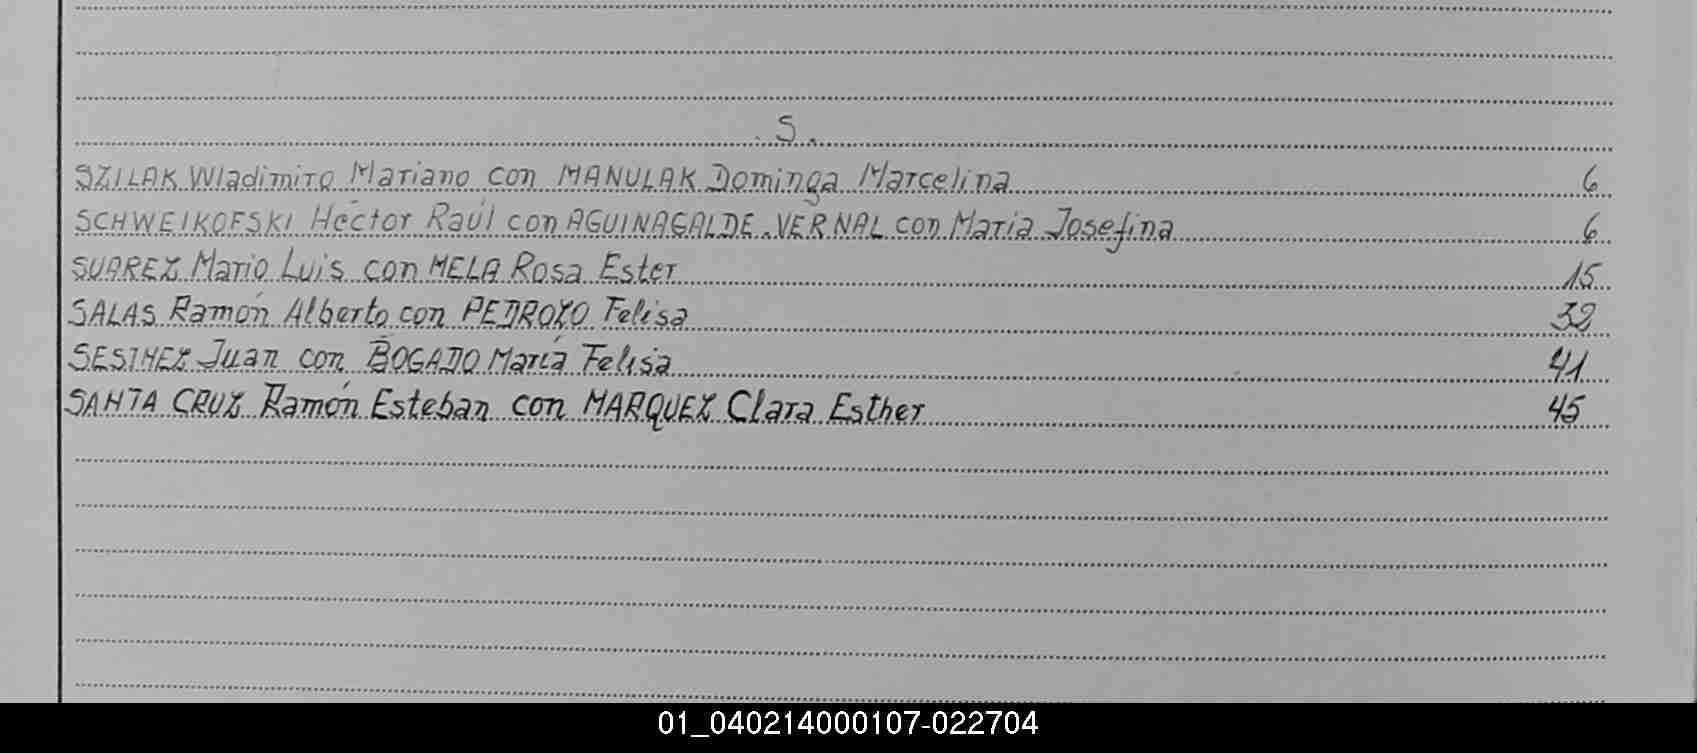 .S.
SZILAK Wladimiro Mariano con MANULAK Dominga Marcelina 6
SCHWEIKOFSKI Héctor Raúl con AGUINAGALDE.VERNAL con María Josefina 6
SUAREZ Mario Luis con MELA Rosa Ester 15
SALAS Ramón Alberto con PEDROZO Felisa 32
Juan con BOGADO María Felisa 41
SANTA CRUZ Ramón Esteban con MARQUEZ Clara Esther 45
01_040214000107-022704